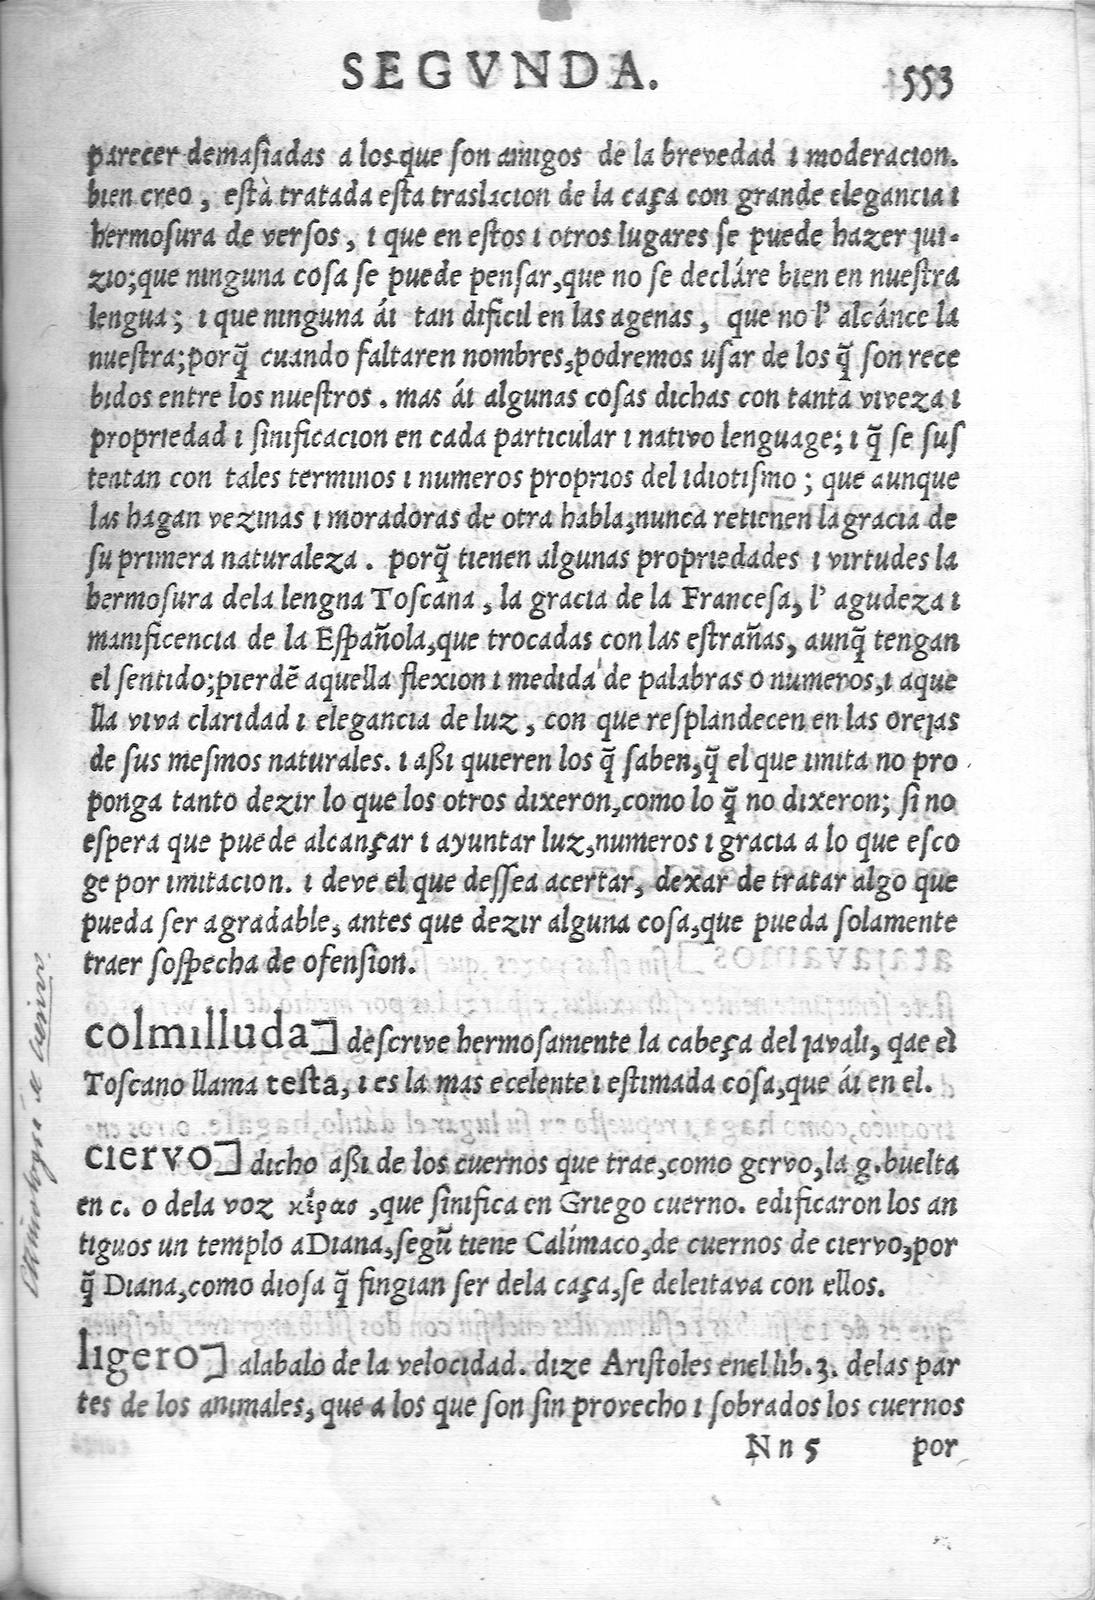 SEGVNDA. 553
parecer demaſiadas a los que ſon amigos de la brevedad i moderacion.
bien creo, eſtà tratada eſta traslacion de la caça con grande elegancia i
hermoſura de verſos, i que en eſtos i otros lugares ſe puede hazer jui-
zio; que ninguna coſa ſe puede penſar, que no ſe decláre bien en nueſtra
lengua; i que ninguna ái tan dificil en las agenas, que no l' alcánce la
nueſtra; porq̃ cuando faltaren nombres, podremos uſar de los q̃ ſon rece
bidos entre los nueſtros. mas ái algunas coſas dichas con tanta viveza i
propriedad i ſinificacion en cada particular i nativo lenguage; i q̃ ſe ſuſ
tentan con tales terminos i numeros proprios del idiotiſmo; que aunque
las hagan vezinas i moradoras de otra habla, nunca retienen la gracia de
ſu primera naturaleza. porq̃ tienen algunas propriedades i virtudes la
hermoſura dela lengna Toſcana, la gracia de la Franceſa, l' agudeza i
manificencia de la Eſpañola, que trocadas con las eſtrañas, aunq̃ tengan
el ſentido; pierdẽ aquella flexion i medida de palabras o numeros, i aque
lla viva claridad i elegancia de luz, con que reſplandecen en las orejas
de ſus meſmos naturales. i aßi quieren los q̃ ſaben, q̃ el que imita no pro
ponga tanto dezir lo que los otros dixeron, como lo q̃ no dixeron; ſi no
eſpera que puede alcançar i ayuntar luz, numeros i gracia a lo que eſco
ge por imitacion. i deve el que deſſea acertar, dexar de tratar algo que
pueda ſer agradable, antes que dezir alguna coſa, que pueda ſolamente
traer ſoſpecha de ofenſion.
colmilluda] deſcrive hermoſamente la cabeça del javali, qae el
Toſcano llama teſta, i es la mas ecelente i eſtimada coſa, que ái en el.
ciervo] dicho aßi de los cuernos que trae, como gervo, la g. buelta
en c. o dela voz κέρας, que ſinifica en Griego cuerno. edificaron los an
tiguos un templo a Diana, ſegũ tiene Calímaco, de cuernos de ciervo, por
q̃ Diana, como dioſa q̃ fingian ſer dela caça, ſe deleitava con ellos.
ligero] alabalo de la velocidad. dize Ariſtoles enel lib. 3. delas par
tes de los animales, que a los que ſon ſin provecho i ſobrados los cuernos
Nn 5 por